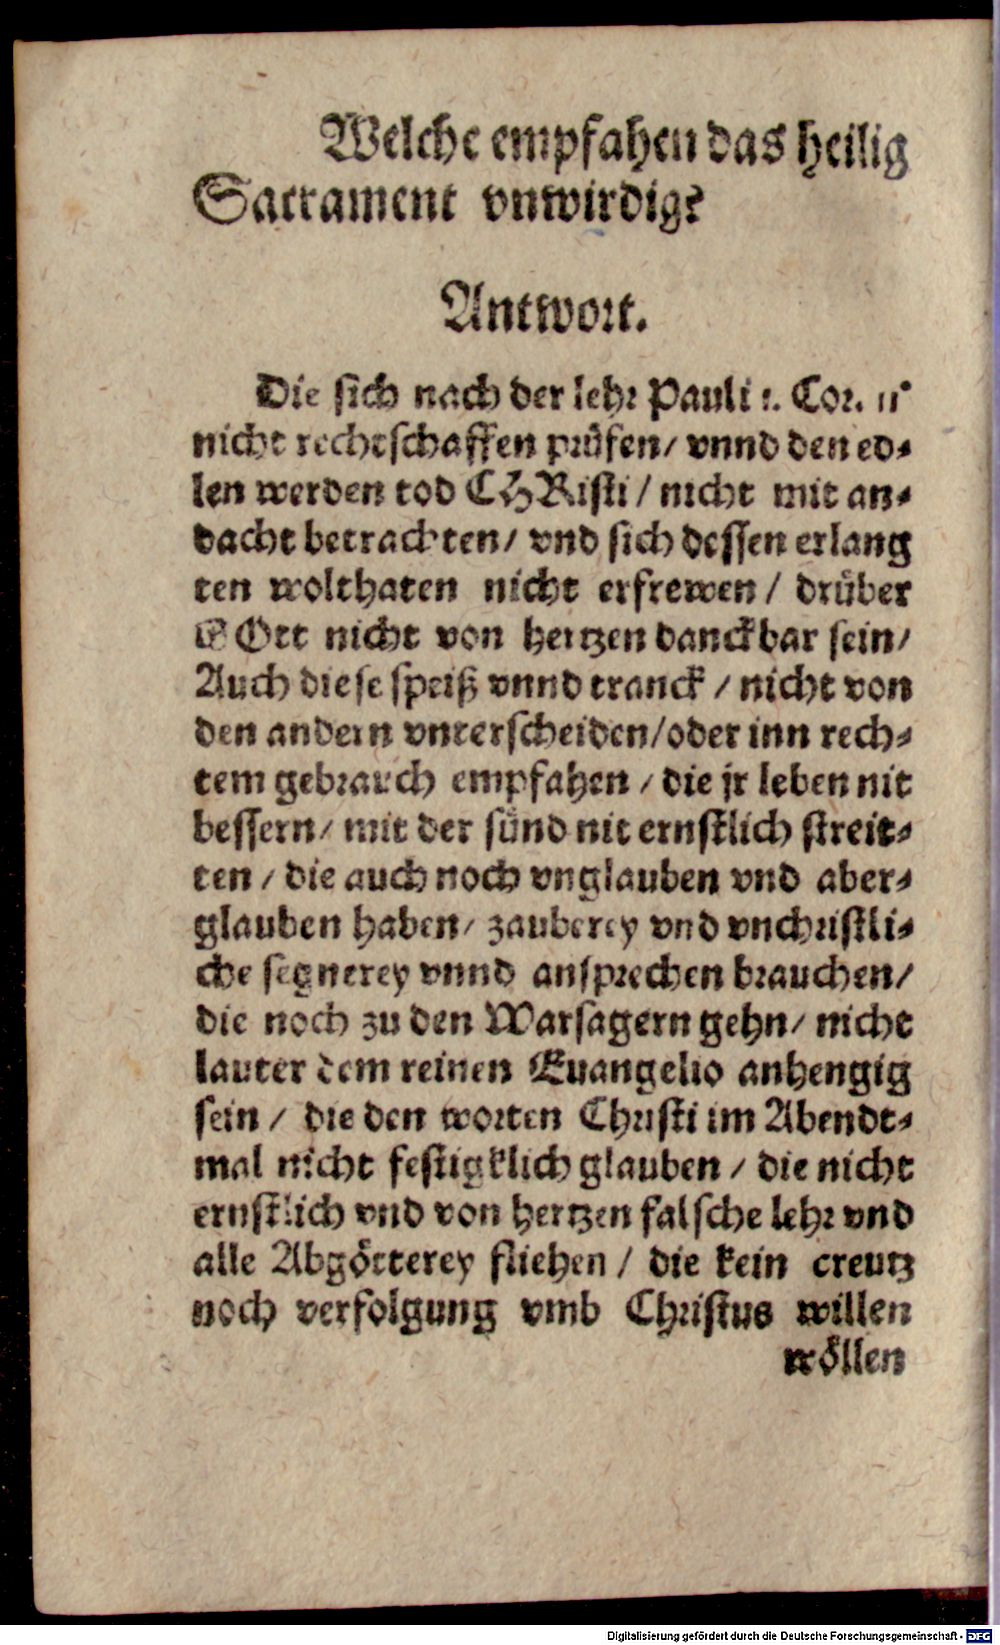 Welche empfahen das heilig
Sacrament vnwirdig?
Antwort.
Die sich nach der lehr Pauli 1. Cor. 11
nicht rechtschaffen prüfen/ vnnd den ed-
len werden tod CHRisti/ nicht mit an-
dacht betrachten/ vnd sich dessen erlang
ten wolthaten nicht erfrewen/ drüber
GOtt nicht von hertzen danckbar sein/
Auch diese speiß vnnd tranck/ nicht von
den andern vnterscheiden/oder inn rech-
tem gebrauch empfahen/ die jr leben nit
bessern/ mit der sünd nit ernstlich streit-
ten/ die auch noch vnglauben vnd aber-
glauben haben/ zauberey vnd vnchristli-
che segnerey vnnd ansprechen brauchen/
die noch zu den Warsagern gehn/ nicht
lauter dem reinen Euangelio anhengig
sein/ die den worten Christi im Abendt-
mal nicht festigklich glauben/ die nicht
ernstlich vnd von hertzen falsche lehr vnd
alle Abgötterey fliehen/ die kein creutz
noch verfolgung vmb Christus willen
wöllen
Digitalisierung gefördert durch die Deutsche Forschungsgemeinschaft - DFG